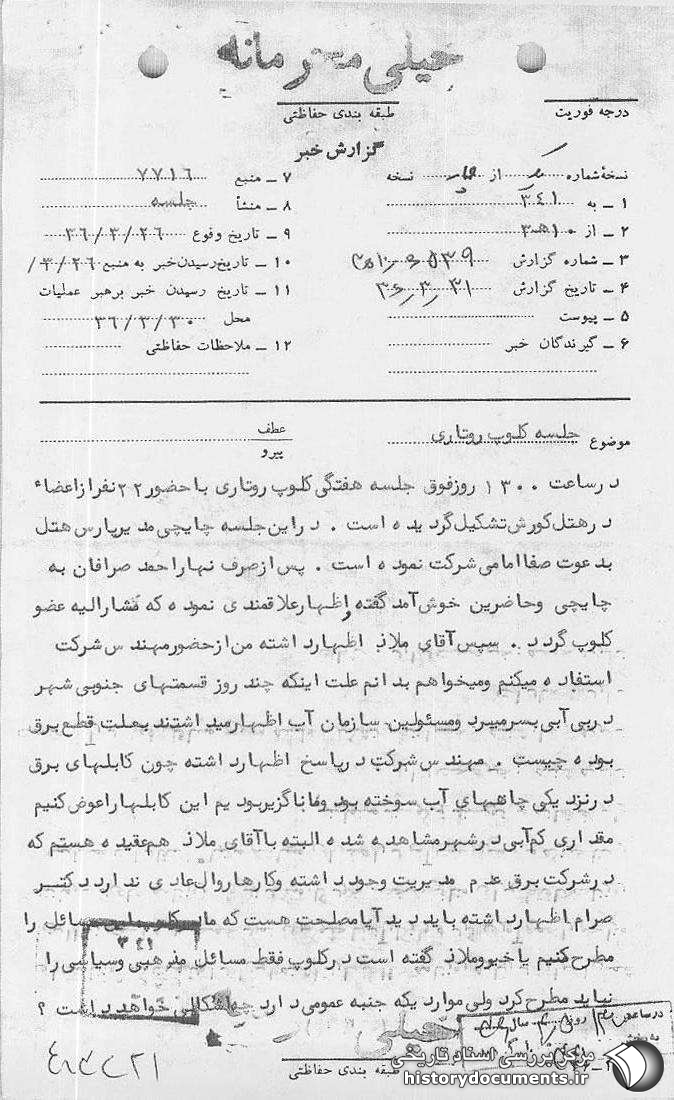 خیلی محرمانه
درجه فوریت
طبقه بندی حفاظتی
گزارش خبر
نسخهٔ شماره از نسخه
۱ ـ به ۳۴۱
۲ ـ از ۱۰ هـ ۳
۳ ـ شماره گزارش
۴ ـ تاریخ گزارش ۳۶/۳/۳۱
۵ ـ پیوست
۶ ـ گیرندگان خبر
۷ ـ منبع ۷۷۱۶
۸ ـ منشأ جلسه
۹ ـ تاریخ وقوع ۳۶/۳/۲۶
۱۰ ـ تاریخ رسیدن خبر به منبع ۳/۲۶/
۱۱ ـ تاریخ رسیدن خبر برهبر عملیات
محل ۳۶/۳/۳۰
۱۲ ـ ملاحظات حفاظتی
موضوع جلسه کلوپ روتاری
عطف
پیرو
درساعت ۱۳۰۰ روزفوق جلسه هفتگی کلوپ روتاری باحضور۲۲نفرازاعضاء
درهتل کورش تشکیل گردیده است . دراین جلسه چایچی مدیرپارس هتل
بدعوت صفاامامی شرکت نموده است . پس ازصرف نهاراحمد صرافان به
چایچی وحاضرین خوش آمد گفته واظهارعلاقمندی نموده که مشارالیه عضو
کلوپ گردد . سپس آقای ملاذ اظهارداشته من ازحضورمهندس شرکت
استفاده میکنم ومیخواهم بدانم علت اینکه چند روز قسمتهای جنوبی شهر
دربی آبی بسرمیبرد ومسئولین سازمان آب اظهارمیداشتند بعلت قطع برق
بوده چیست . مهندس شرکت درپاسخ اظهارداشته چون کابلهای برق
درنزد یکی چاههای آب سوخته بود وماناگزیربودیم این کابلهاراعوض کنیم
مقداری کم آبی درشهرمشاهده شده البته باآقای ملاذ هم عقیده هستم که
درشرکت برق عدم مدیریت وجود داشته وکارهاروال عادی ندارد دکتر
صرام اظهارداشته باید دید آیامصلحت هست که مادرکلوپ این مسائل را
مطرح کنیم یاخیروملاذ گفته است درکلوپ فقط مسائل مذهبی وسیاسی را
نباید مطرح کرد ولی مواردیکه جنبه عمومی دارد چه اشکالی خواهد داشت ؟
۳۴۱
خیلی
طبقه بندی حفاظتی
درساعت روز سال
مرکز بررسی اسناد تاریخی
historydocuments.ir